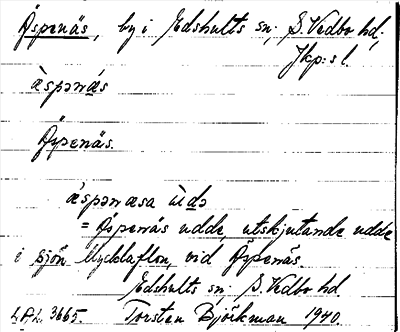 Äspenäs, by i Edshults sn; S. Vedbo hd,
Jkp:s l.
àspənás
Äspenäs.
áspənæsa ùdə
= Äspenäs udde, utskjutande udde
i sjön Mycklaflon, vid Äspenäs.
Edshults sn; S. Vedbo hd
ULA. 3665. Torsten Björkman 1940.